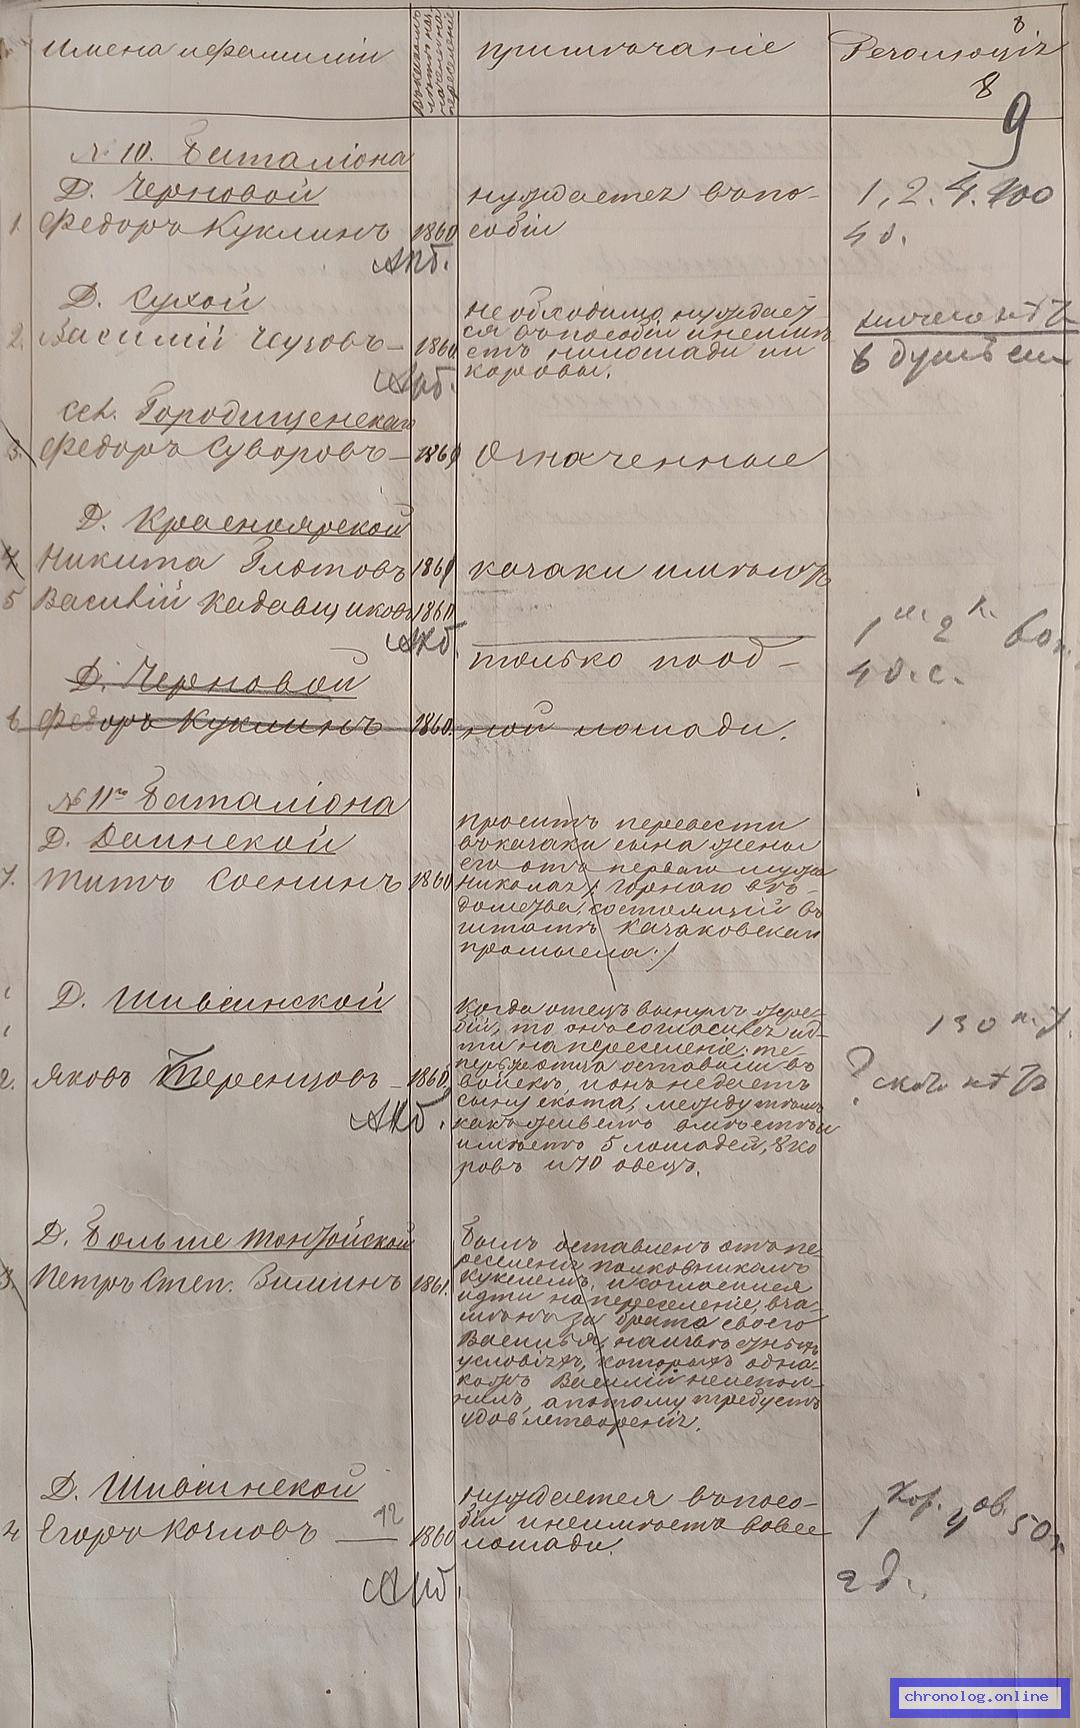 8
Имена и фамилии
Въ какомъ
году наз-
наченъ на
переселенiе
Примѣчанiе
Резолюцiя
8
9
№ 10. Баталiона
Д. Черновой
1. Федоръ Куклинъ 1860
нуждается въ посо-
собiи
1, 2. 4. 400
4 д.
Д. Сухой
2. Василiй Чузовъ 1860.
необходимо нуждает-
ся въ пособiи и неимѣ-
етъ ни лошади ни
коровы.
ничего нѣтъ
6 душъ сем
сел. Городищенскаго
3. Федоръ Суворовъ 1860
Означенные
Д. Красноярской
4 Никита Глотовъ 1860
казаки имѣютъ
5 Василiй Кадавщиковъ 1860
1 2 к. 60
4 д. с.
только по од-
Д. Черновой
6 Федоръ Куклинъ 1860.
ной лошади.
№ 11го Баталiона
Д. Даинской
7. Титъ Соенинъ 1860
проситъ перевести
въ казаки сына жены
его отъ перваго мужа
Николая /: горнаго вѣ-
домства, состоящiй въ
штатѣ Казаковскаго
промысла :/
Д. Шивiинской
2. Яковъ Теренцовъ 1860
Когда отецъ вынулъ жре-
бiй, то онъ согласился ид-
ти на переселенiе; те-
перь же отца оставили въ
войскѣ, и онъ недаетъ
сыну скота, между тѣмъ
какъ живетъ вмѣстѣ и
имѣетъ 5 лошадей, 8 ко
ровъ и 70 овецъ.
130
? скота нѣтъ
Д. Больше Тонтойской
3. Петръ Степ. Зиминъ 1861.
Былъ оставленъ отъ пе-
реселенiя полковникомъ
Кукелемъ, и согласился
идти на переселенiе, вза-
мѣнъ за брата своего
Василья, на извѣстныхъ
условiяхъ, которыхъ одна-
кожъ Василiй неиспол-
нилъ, а потому требуетъ
удовлетворенiя.
Д. Шивiинской
12
4. Егоръ Козловъ 1860
нуждается въ посо-
бiи и неимѣетъ вовсе
лошади.
1 кор. 4 ов. 50
2 д.
chronolog.online